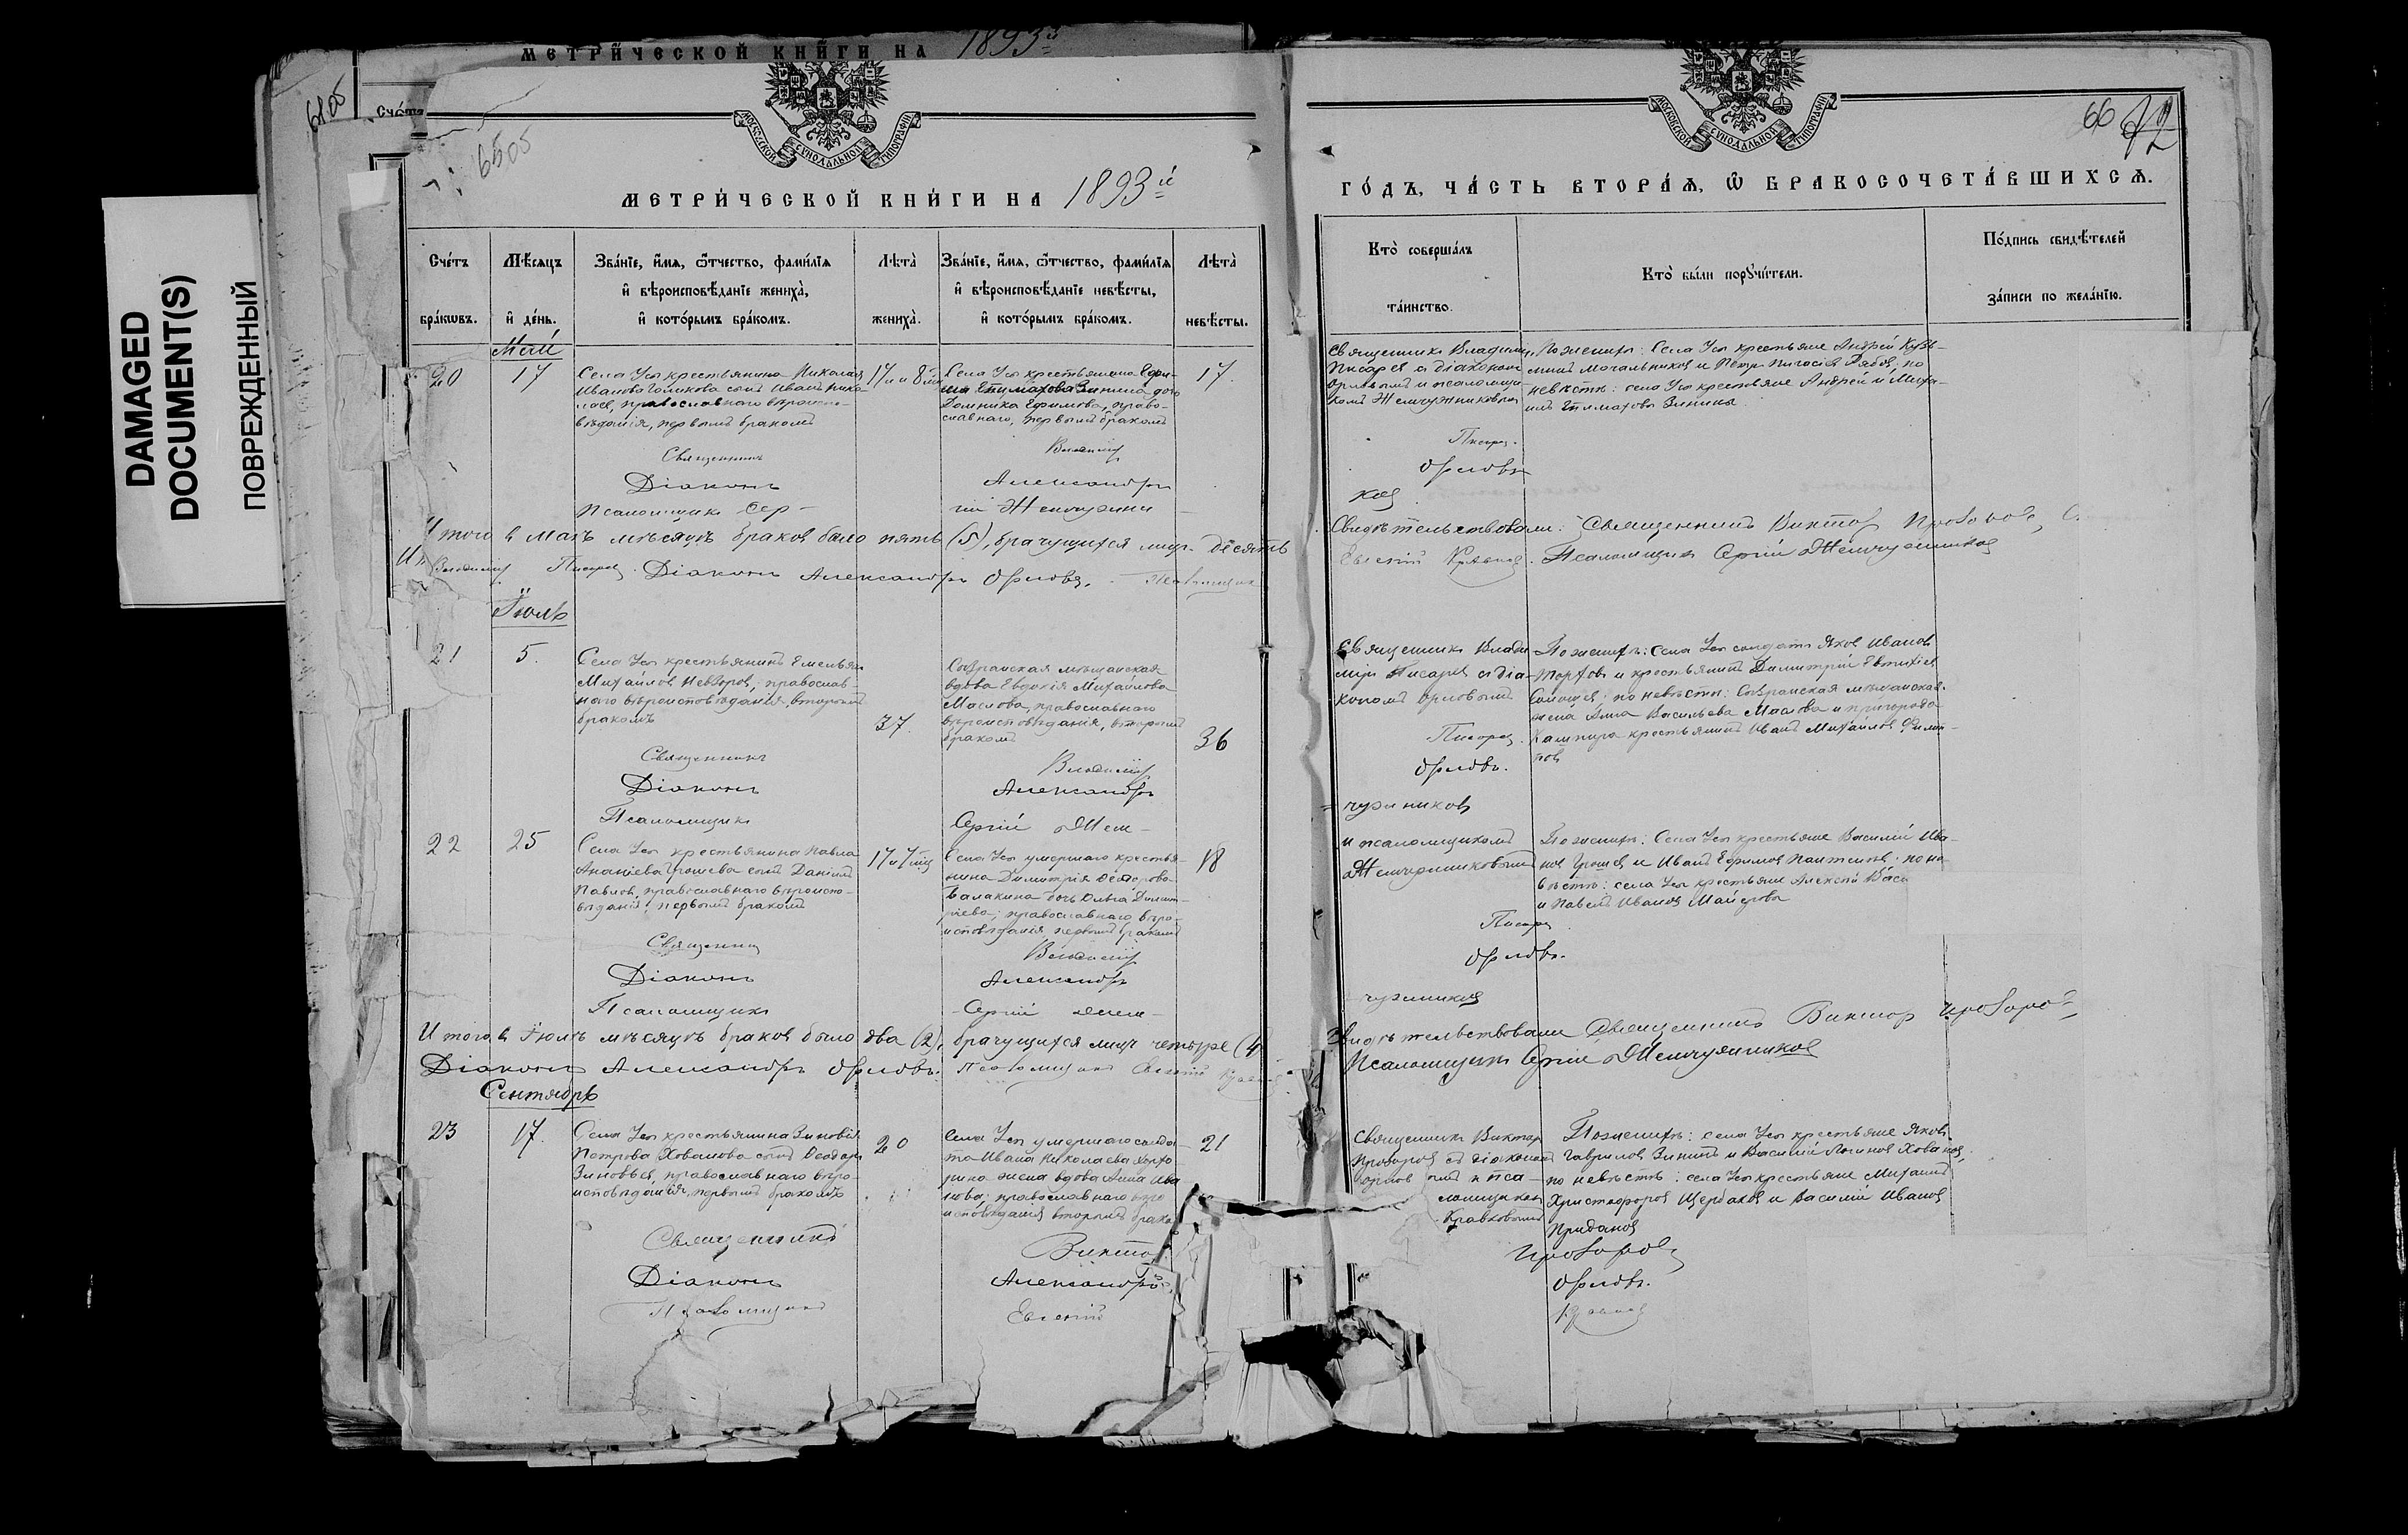 DAMAGED
DOCUMENT(S)
ПОВРЕЖДЕННЫЙ
МЕТРИ́ЧЕСКОЙ КНИ́ГИ НА 1893
Сче́тъ
6505
МОСКОВСКОЙ СѴНОДАЛЬНОЙ ТИПОГРАФІИ
МЕТРИ́ЧЕСКОЙ КНИ́ГИ НА 1893й
Сче́тъ бра́кωвъ.
Мѣ́сяцъ и де́нь.
Зва́нїе, и́мя, ѻ҆́тчество, фами́лїя
и вѣроисповѣ́данїе жениха̀,
и кото́рымъ бра́комъ.
Лѣта̀ жениха̀.
Зва́нїе, и́мя, ѻ҆́тчество, фами́лїя
и вѣроисповѣ́данїе невѣ́сты,
и кото́рымъ бра́комъ.
Лѣта̀ невѣ́сты.
Май
20
17
Села Усы крестьянина Николая
Иванова Голикова сынъ Иванъ Нико-
лаевъ, православнаго вѣроиспо-
вѣданія, первымъ бракомъ
17 и 8 мѣс
Села Усы крестьянина Ефи-
ма Зинина дочь
Домника Ефимова, право-
славнаго, первымъ бракомъ
17.
Священникъ Владиміръ
Діаконъ Александръ
Псаломщикъ Сер-
гій Жемчужни
Итого въ маѣ мѣсяцѣ браковъ было пять (5), брачущихся лицъ десять
Владиміръ Писаревъ. Діаконъ Александръ Орловъ. Псаломщикъ
Іюль
21
5.
Села Усы крестьянинъ Емельянъ
Михайловъ Невзоровъ, православ-
наго вѣроисповѣданія, вторымъ
бракомъ
37.
Сызранская мѣщанская
вдова Евдокія Михайлова
Маслова, православнаго
вѣроисповѣданія, вторымъ
бракомъ
36
Священникъ Владиміръ
Діаконъ Александръ
Псаломщикъ Сергій Жем-
22
25
Села Усы крестьянина Павла
Ананіева Грошева сынъ Даніилъ
Павловъ, православнаго вѣроиспо-
вѣданія, первымъ бракомъ
17 и 7 мѣс
Села Усы умершаго крестья-
нина Димитрія Ѳедорова
Балакина дочь Ольга Димит-
ріева, православнаго вѣро-
исповѣданія первымъ бракомъ
18
Священникъ Владиміръ
Діаконъ Александръ
Псаломщикъ Сергій Жем-
Итого въ Іюлѣ мѣсяцѣ браковъ было два (2), брачущихся лицъ четыре (4)
Діаконъ Александръ Орловъ. Псаломщикъ Евгеній
Сентябрь
23
17.
Села Усы крестьянина Зиновія
Петрова Хованова сынъ Ѳеодоръ
Зиновьевъ, православнаго вѣро-
исповѣданія, первымъ бракомъ
20
Села Усы умершаго солда-
та Ивана Николаева
жена вдова Анна Ива
нова, православнаго вѣро
исповѣданія вторымъ брако
21
Священникъ Виктор
Діаконъ Александръ
Псаломщикъ Евгеній
66 72
МОСКОВСКОЙ СѴНОДАЛЬНОЙ ТИПОГРАФІИ
ГО́ДЪ, ЧА́СТЬ ВТОРА́Я, Ѽ БРАКОСОЧЕТА́ВШИХСЯ.
Кто̀ соверша́лъ та́инство.
Кто̀ бы́ли пору́чи́тели.
По́дпись свидѣ́телей
за́писи по жела́нїю.
Священникъ Владиміръ
Писаревъ съ діакономъ
Орловымъ и псаломщи-
комъ Жемчужниковымъ
По женихѣ: Села Усы крестьяне Андрей Кузь-
минъ Мочальниковъ и Петръ Рябовъ, по
невѣстѣ: села Усы крестьяне Андрей и Миха-
илъ Зинины
Писаревъ.
Орловъ
ковъ
Свидѣтельствовали: Священникъ Викторъ Прозоровъ,
Евгеній Кравковъ. Псаломщикъ Сергій Жемчужниковъ
Священникъ Влади
міръ Писаревъ съ діа-
кономъ Орловымъ
По женихѣ: Села Усы солдатъ Яковъ Ивановъ
и крестьянинъ Димитрій
по невѣстѣ: Сызранская мѣщанская
жена Анна Васильева Маслова и пригорода
Кашпира крестьянинъ Иванъ Михайловъ Филип-
повъ
Писаревъ.
Орловъ.
чужниковъ
и псаломщикомъ
Жемчужниковымъ
По женихѣ: Села Усы крестьяне Василій Ива-
новъ Грошевъ и Иванъ Ефимовъ по не
вѣстѣ: села Усы крестьяне Алексѣй Васи
и Павелъ Ивановъ
Писаревъ
Орловъ.
чужниковъ
Свидѣтельствовали Священникъ Викторъ Прозоровъ,
Псаломщикъ Сергій Жемчужниковъ
Священникъ Викторъ
Прозоровъ съ діакономъ
Орловымъ и пса-
ломщикомъ
Кравковымъ
По женихѣ: села Усы крестьяне Яковъ
Гавриловъ Зининъ и Василій Логиновъ Ховановъ,
по невѣстѣ: села Усы крестьяне Михаилъ
Христофоровъ Щербаковъ и Василій Ивановъ
Придановъ
Прозоровъ
Орловъ.
Кравковъ